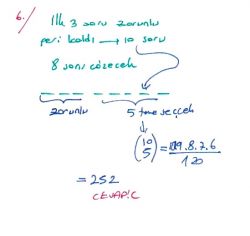 6.) İlk 3 soru zorunlu
geri kaldı → 10 soru
8 soru çözecek
zorunlu 5 tane seçcek
(10 5) = 10.9.8.7.6 / 120
= 252
CEVAP: C